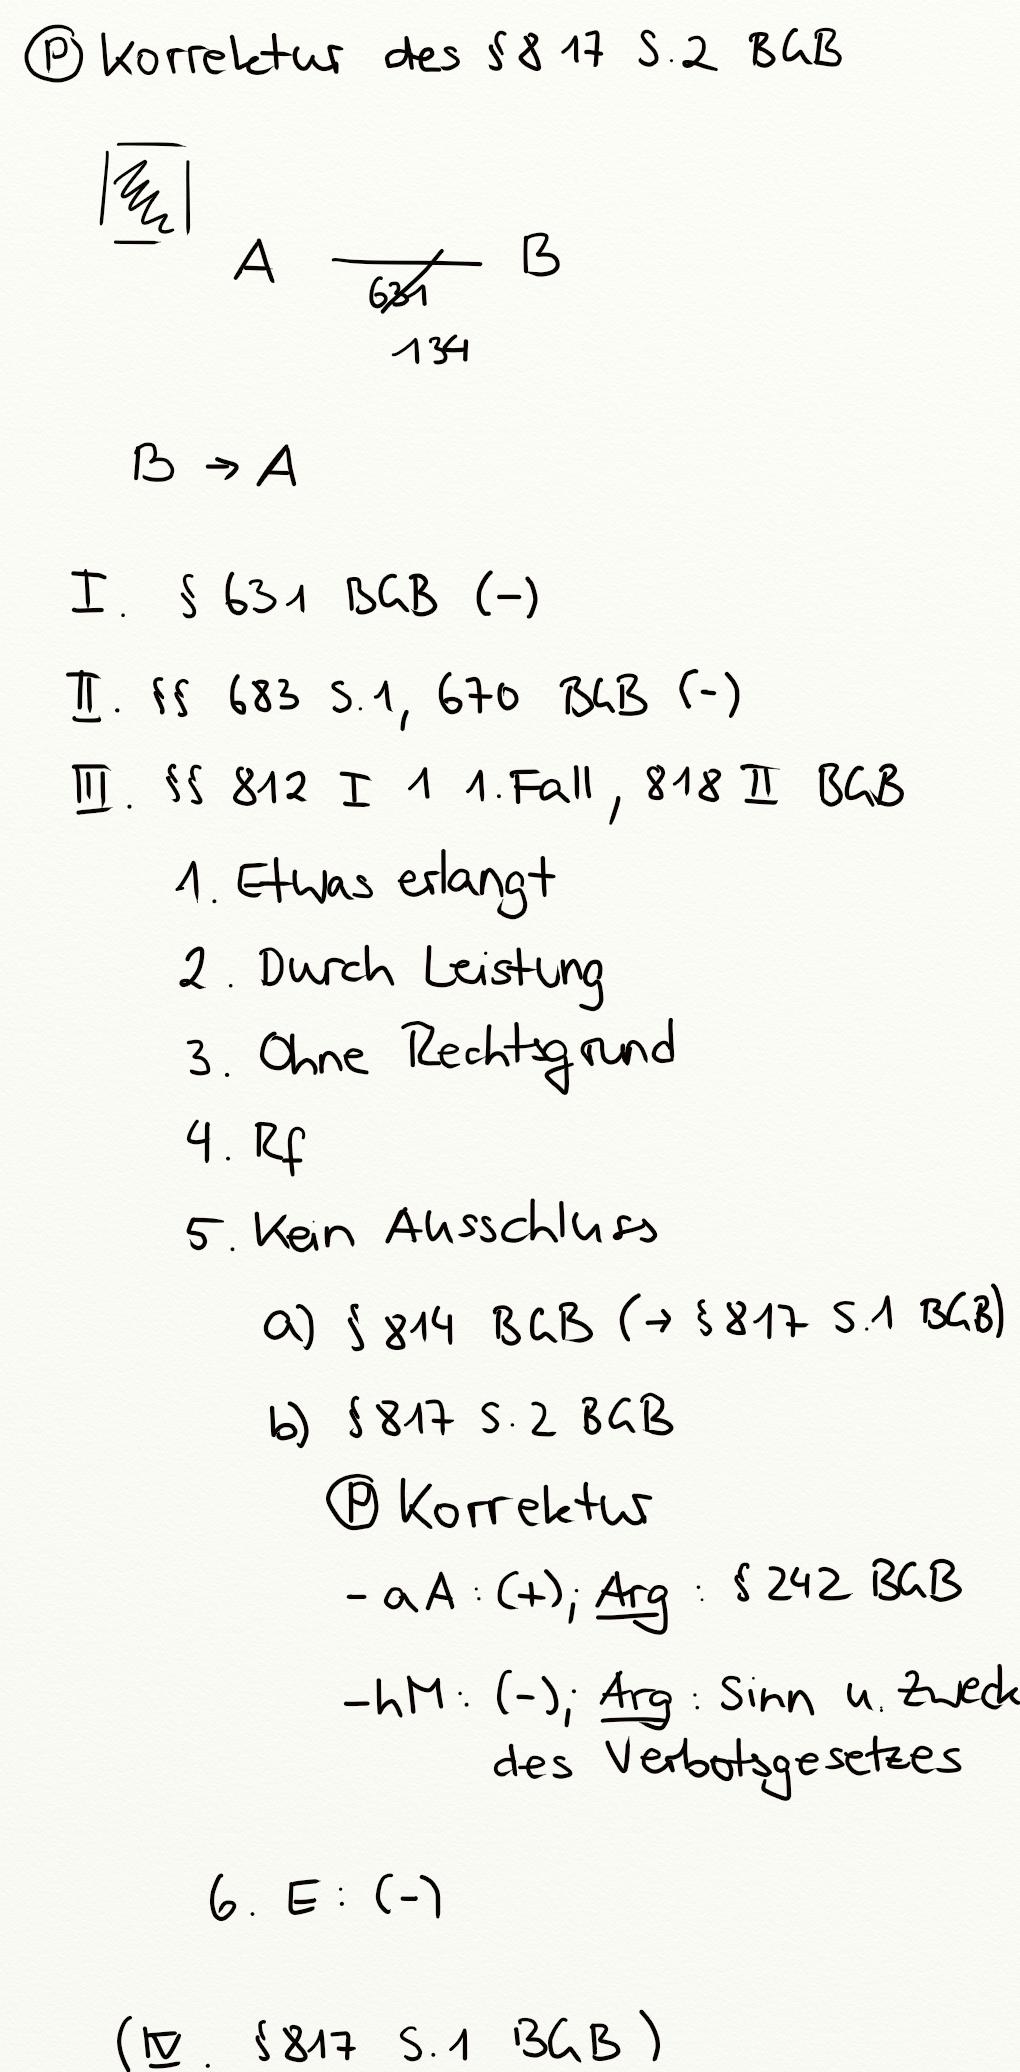 Ⓟ Korrektur des § 817 S.2 BGB
A B
631
134
B → A
I. § 631 BGB (-)
II. §§ 683 S.1, 670 BGB (-)
III. §§ 812 I 1 1.Fall, 818 II BGB
1. Etwas erlangt
2. Durch Leistung
3. Ohne Rechtsgrund
4. Rf
5. Kein Ausschluss
a) § 814 BGB (→ § 817 S.1 BGB)
b) § 817 S.2 BGB
Ⓟ Korrektur
- aA: (+); Arg: § 242 BGB
- hM: (-); Arg: Sinn u. Zweck
des Verbotsgesetzes
6. E: (-)
(IV. § 817 S.1 BGB)